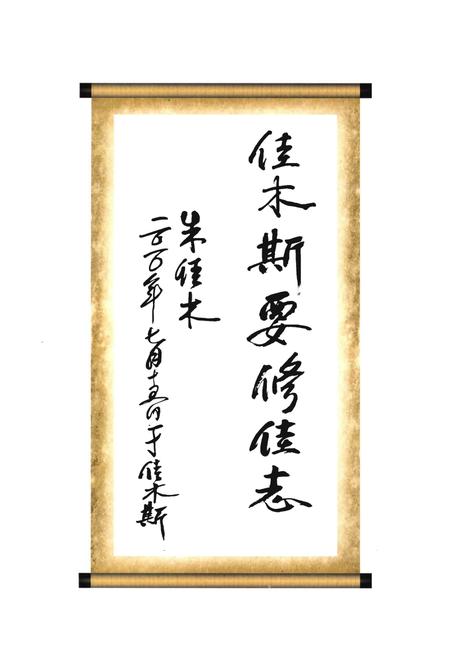 佳木斯要修佳志
朱佳木
二〇〇八年七月十五日于佳木斯